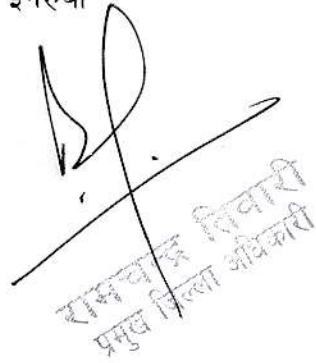 रामचन्द्र तिवारी
प्रमुख जिल्ला अधिकारी